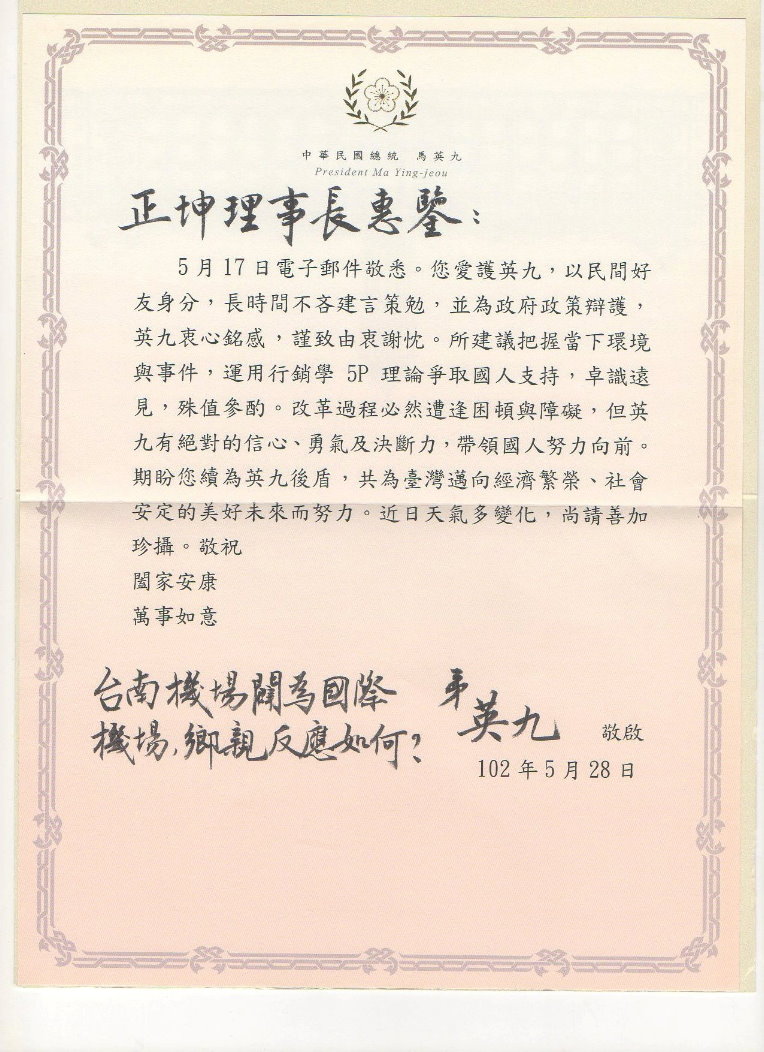 中華民國總統　馬英九
President Ma Ying-jeou
正坤理事長惠鑒：
5月17日電子郵件敬悉。您愛護英九，以民間好
友身分，長時間不吝建言策勉，並為政府政策辯護，
英九衷心銘感，謹致由衷謝忱。所建議把握當下環境
與事件，運用行銷學 5P 理論爭取國人支持，卓識遠
見，殊值參酌。改革過程必然遭逢困頓與障礙，但英
九有絕對的信心、勇氣及決斷力，帶領國人努力向前。
期盼您續為英九後盾，共為臺灣邁向經濟繁榮、社會
安定的美好未來而努力。近日天氣多變化，尚請善加
珍攝。敬祝
闔家安康
萬事如意
台南機場闢為國際
機場，鄉親反應如何？
弟
英九 敬啟
102年5月28日